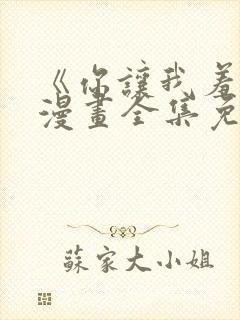 《你讓我羞
漫畫全集免
蘇家大小姐